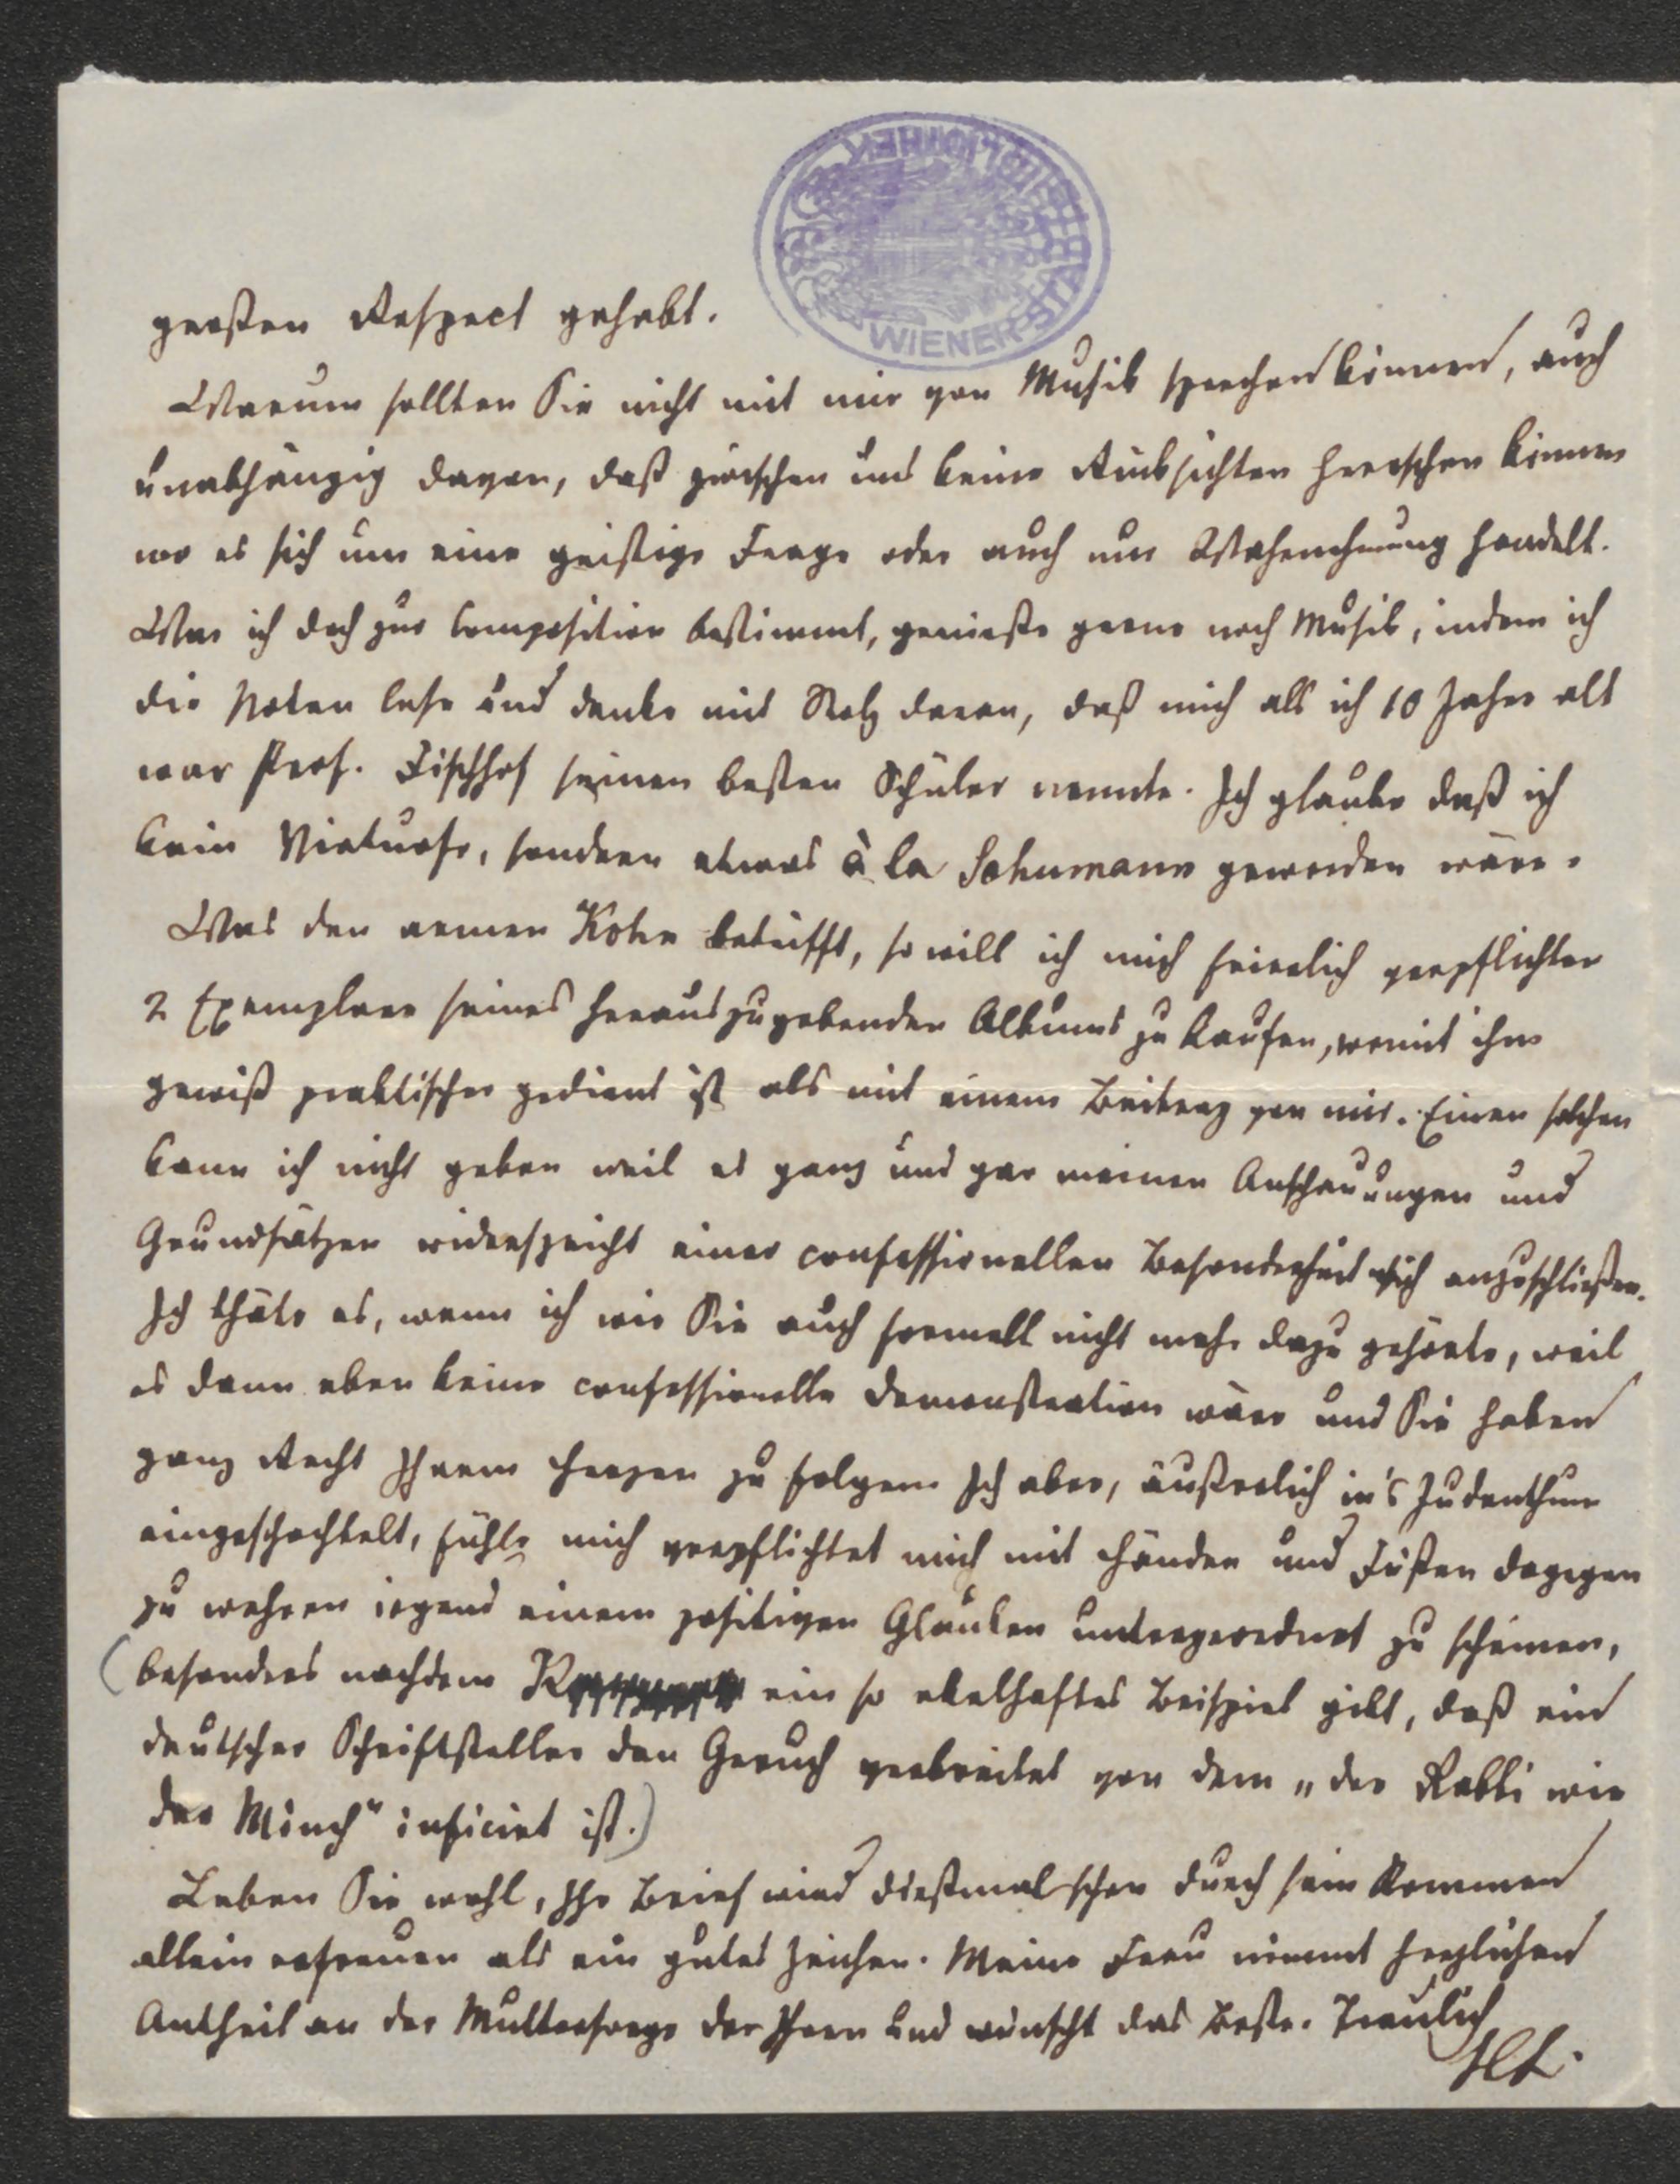 WIENER STADTBIBLIOTHEK
großen Respect gehabt.
Warum sollten Sie nicht mit mir von Musik sprechen können, auch
unabhängig davon, daß zwischen uns keine Rücksichten herrschen können
wo es sich um eine geistige Frage oder auch nur Wahrnehmung handelt.
War ich doch zur Composition bestimmt, genieße gerne noch Musik, indem ich
die Noten lese und denke mit Stolz daran, daß mich als ich 10 Jahre alt
war Prof. Fischhof seinen besten Schüler nannte. Ich glaube daß ich
kein Virtuose, sondern etwas à la Schumann geworden wäre.
Was den armen Kohn betrifft, so will ich mich feierlich verpflichten
2 Exemplare seines herauszugebenden Albums zu kaufen, womit ihm
gewiß praktischer gedient ist als mit einem Beitrag von mir. Einen solchen
kann ich nicht geben weil es ganz und gar meinen Anschauungen und
Grundsätzen widerspricht einer confessionellen Besonderheit mich anzuschließen.
Ich thäte es, wenn ich wie Sie auch formell nicht mehr dazu gehörte, weil
es dann eben keine confessionelle Demonstration wäre und Sie haben
ganz Recht Ihrem Herzen zu folgen. Ich aber, äußerlich in's Judenthum
eingeschachtelt, fühle mich verpflichtet mich mit Händen und Füßen dagegen
zu wehren irgend einem positiven Glauben untergeordnet zu scheinen,
(besonders nachdem K ein so ekelhaftes Beispiel gibt, daß ein
deutscher Schriftsteller den Geruch verbreitet von dem „der Rabbi wie
der Mönch" inficirt ist.)
Leben Sie wohl, Ihr Brief wird dießmal schon durch sein Kommen
allein erfreuen als ein gutes Zeichen. Meine Frau nimmt herzlichen
Antheil an der Muttersorge der Ihren und wünscht das Beste. Traulich
HL.